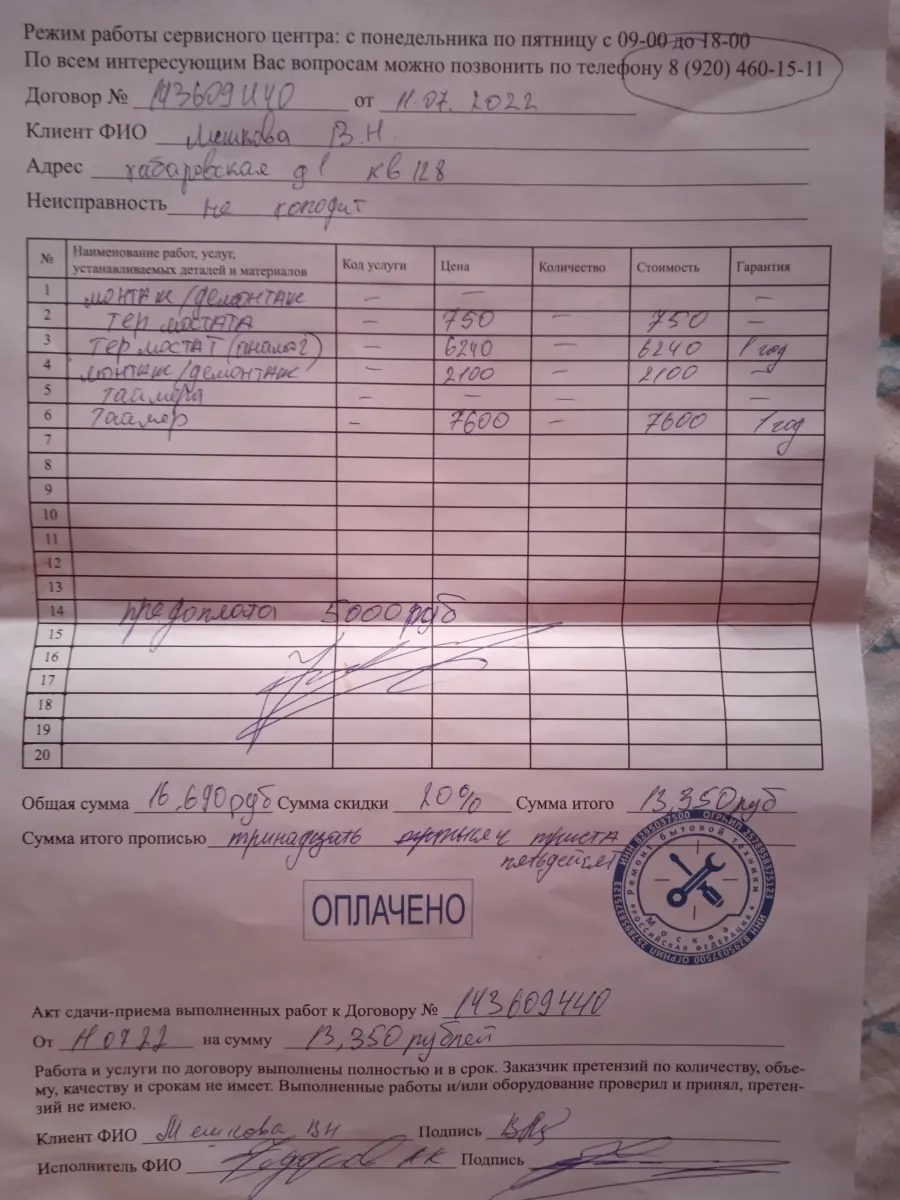 Режим работы сервисного центра: с понедельника по пятницу с 09-00 до 18-00
По всем интересующим Вас вопросам можно позвонить по телефону 8 (920) 460-15-11
Договор № 143609440 от 11.07.2022
Клиент ФИО Мешкова В.Н.
Адрес хабаровская д1 кв 128
Неисправность не холодит
№ Наименование работ, услуг, устанавливаемых деталей и материалов Код услуги Цена Количество Стоимость Гарантия
1 монтаж/демонтаж – – –
2 термостата – 750 – 750 –
3 термостат (аналог) – 6240 – 6240 1 год
4 монтаж/демонтаж – 2100 – 2100 –
5 таймера – – – – –
6 Таймер – 7600 – 7600 1 год
7
8
9
10
11
12
13
14 предоплата 5000 руб
15
16
17
18
19
20
Общая сумма 16,690 руб Сумма скидки 20% Сумма итого 13,350 руб
Сумма итого прописью тринадцать тысяч триста
пятьдесят
ОПЛАЧЕНО
ИНН 8295037500 ОГРНИП 2578958375123
Ремонт бытовой техники
Москва
РОССИЙСКАЯ ФЕДЕРАЦИЯ
Акт сдачи-приема выполненных работ к Договору № 143609440
От 110722 на сумму 13,350 рублей
Работа и услуги по договору выполнены полностью и в срок. Заказчик претензий по количеству, объе-
му, качеству и срокам не имеет. Выполненные работы и/или оборудование проверил и принял, претен-
зий не имею.
Клиент ФИО Мешкова ВН Подпись
Исполнитель ФИО Подпись